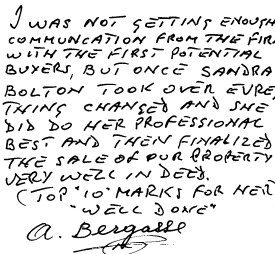 I WAS NOT GETTING ENOUGH
COMMUNCATION FROM THE FIR
WITH THE FIRST POTENTIAL
BUYERS, BUT ONCE SANDRA
BOLTON TOOK OVER EVRE,
THING CHANGED AND SHE
DID DO HER PROFESSIONAL
BEST AND THEN FINALIZED
THE SALE OF OUR PROPERTY
VERY WELL IN DEED.
(TOP "10" MARKS FOR HER
"WELL DONE"
A. Bergasse